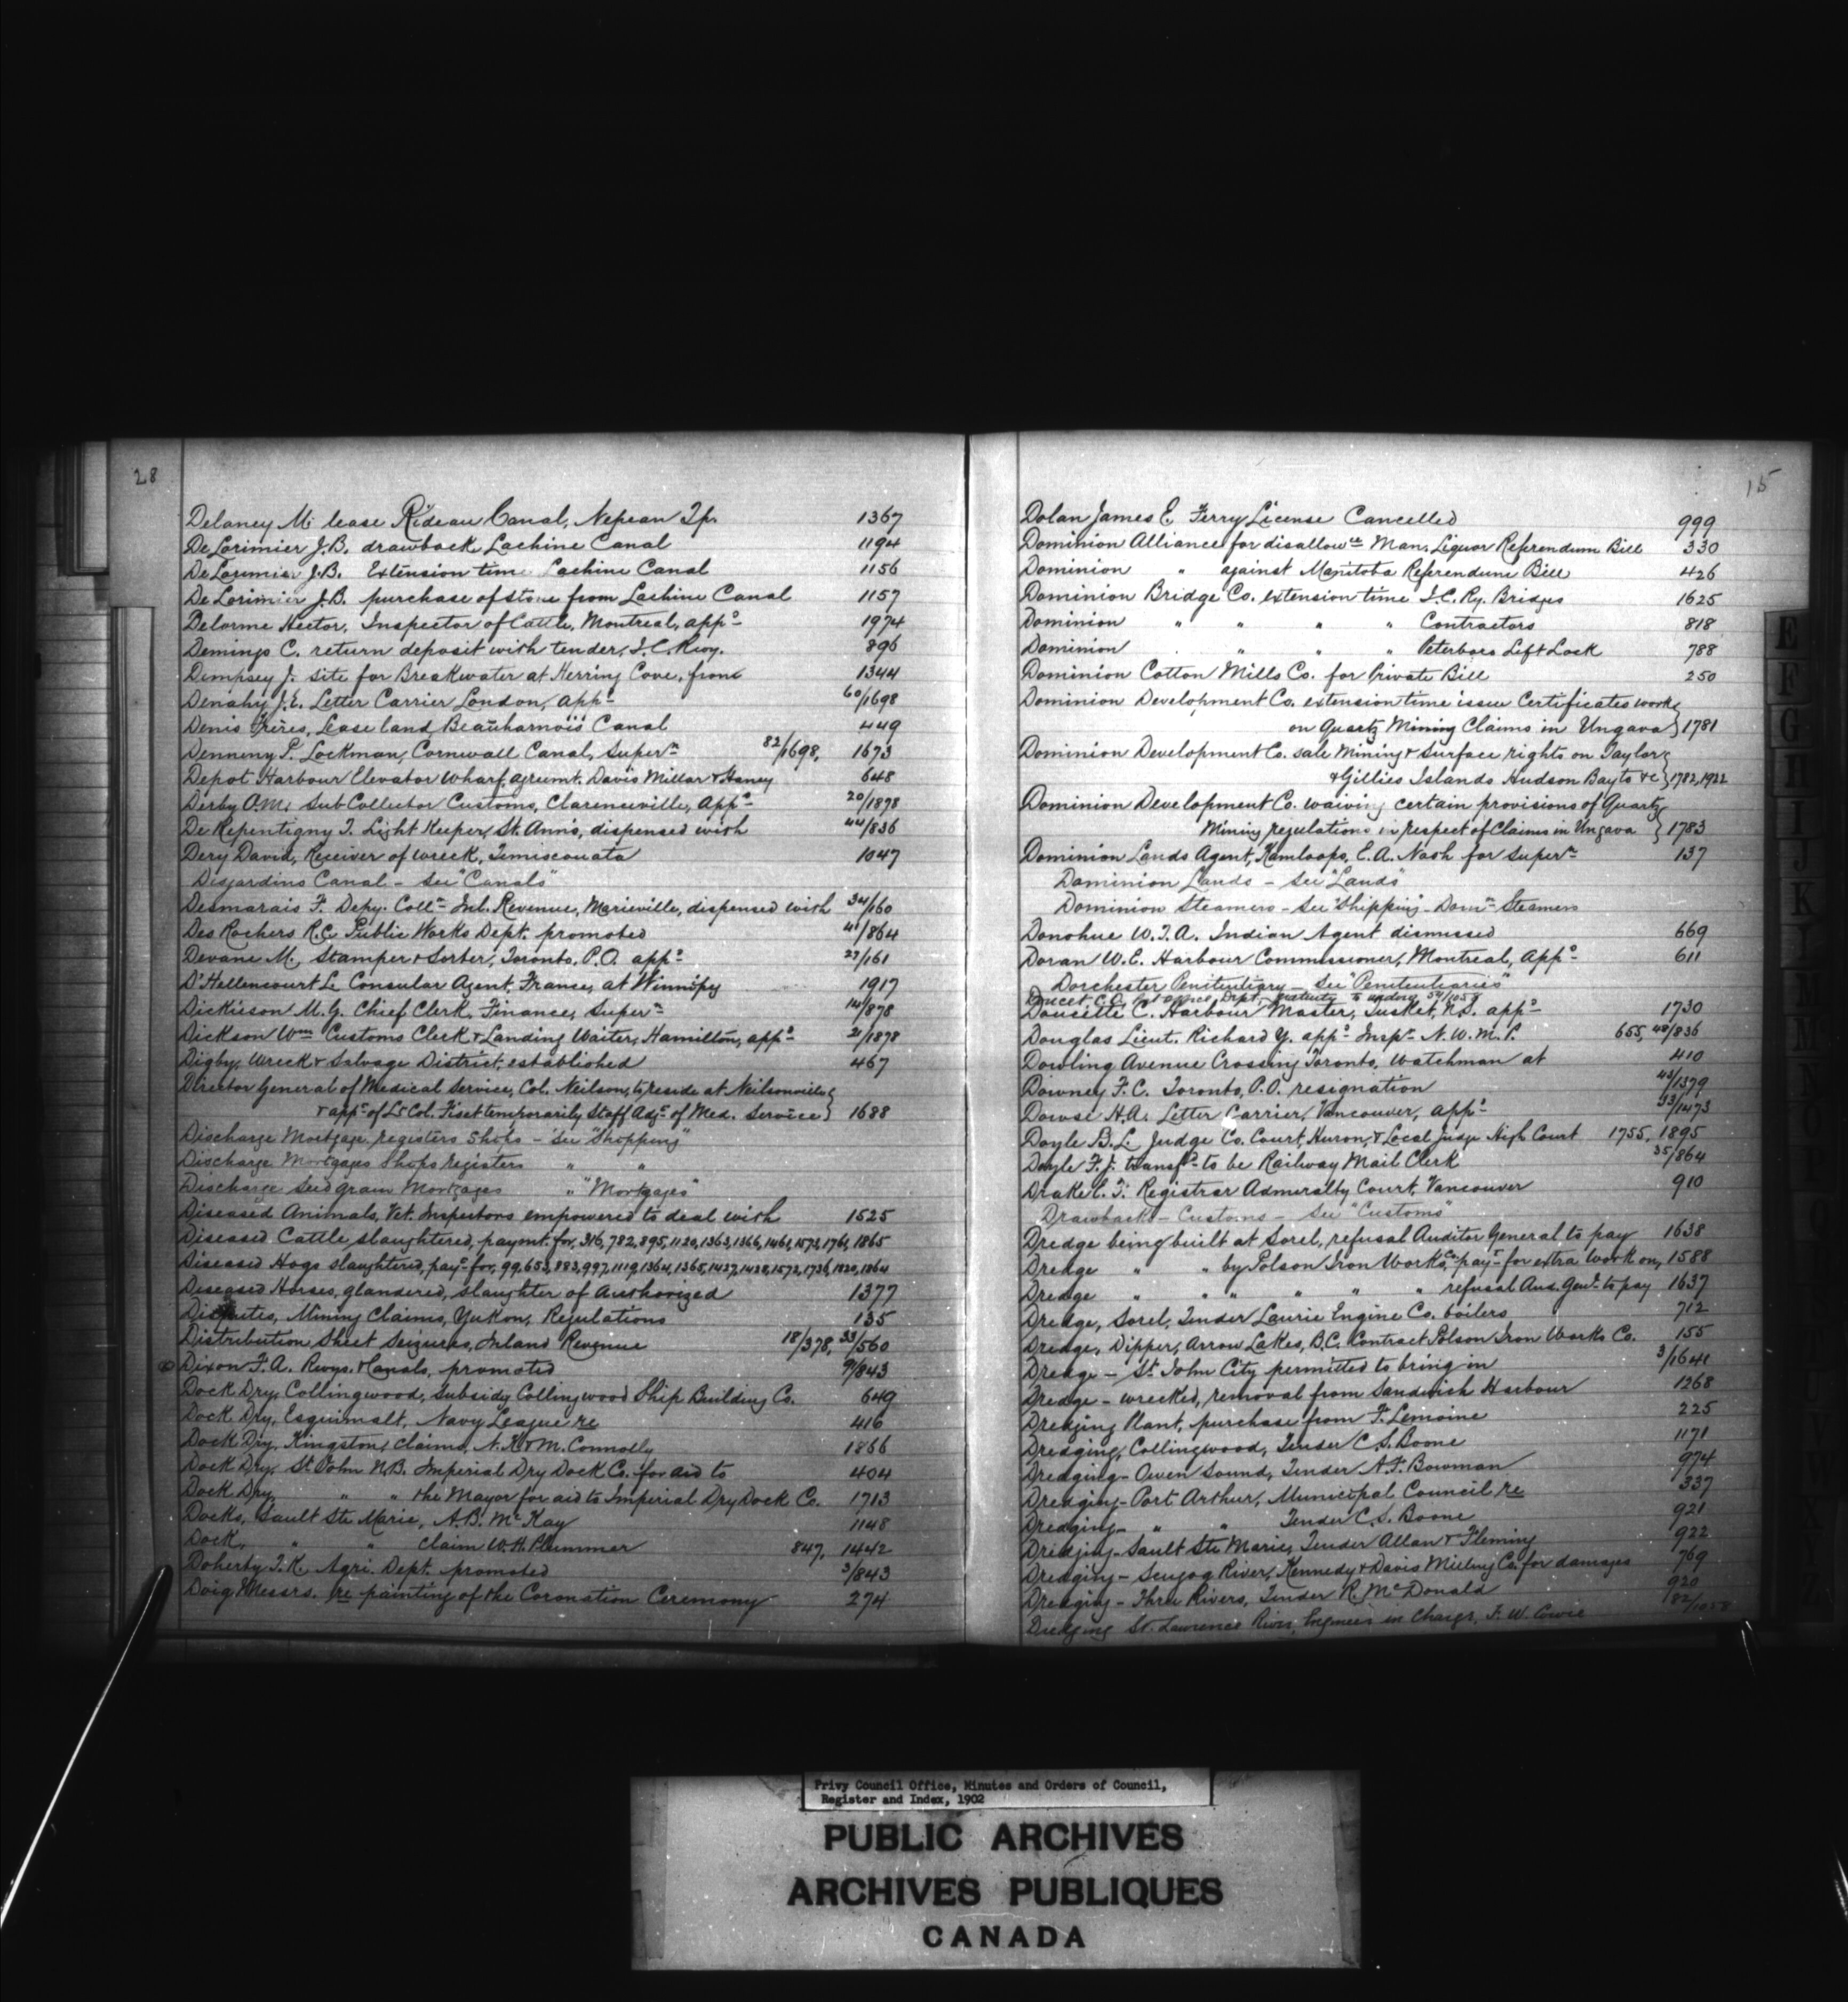 28
Delaney M. lease Rideau Canal, Nepean Tp. 1367
De Lorimier J.B. drawback Lachine Canal 1194
De Lorimier J.B. Extension time Lachine Canal 1156
De Lorimier J.B. purchase of stone from Lachine Canal 1157
Delorme Hector, Inspector of Cattle, Montreal, app.d 1974
Demings C. return deposit with tender, I.C. Rwy. 896
Dempsey J. site for Breakwater at Herring Cove, from 1344
Denahy J.E. Letter Carrier London, app.d 60/1698
Denis Frères, Lease land, Beauharnois Canal 449
Denneny P. Lockman, Cornwall Canal, Super.n 82/1698, 1673
Depot Harbour Elevator Wharf, agrumt. Davis Millar & Haney 648
Derby O.M. Sub Collector Customs, Clarenceville, App.d 20/1878
De Repentigny T. Light Keeper, St. Ann's, dispensed with 44/836
Dery David, Receiver of wreck, Temiscouata 1047
Desjardins Canal - See "Canals"
Desmarais F. Depy. Coll.r Inl. Revenue, Marieville, dispensed with 34/160
Des Rochers R.C. Public Works Dept. promoted 41/864
Devane M. Stamper & Sorter, Toronto, P.O. app.d 27/161
D'Hellencourt L. Consular Agent, France, at Winnipeg 1917
Dickieson M.G. Chief Clerk, Finance, Super.n 14/878
Dickson Wm Customs Clerk & Landing Waiter, Hamilton, app.d 21/1878
Digby, Wreck & Salvage District, established 467
Director General of Medical Service, Col. Neilson, to reside at Neilsonville
& app.t of Lt Col. Fiset temporarily Staff Adj.t of Med. Service } 1688
Discharge Mortgage registers Ships - See "Shipping"
Discharge Mortgages Ships registers " "
Discharge Seed grain Mortgages " "Mortgages"
Diseased Animals, Vet. Inspectors empowered to deal with 1525
Diseased Cattle slaughtered, paymt. for, 316, 782, 895, 1120, 1363, 1366, 1461, 1573, 1761, 1865
Diseased Hogs slaughtered, pay.t for, 99, 653, 883, 997, 1119, 1364, 1365, 1427, 1428, 1572, 1736, 1820, 1864
Diseased Horses, glandered, slaughter of Authorized 1377
Disputes, Mining Claims, Yukon, Regulations 135
Distribution Sheet Seizures, Inland Revenue 18/378, 33/560
Dixon F.A. Rwys. & Canals, promoted 9/843
Dock Dry, Collingwood, Subsidy Collingwood Ship Building Co. 649
Dock Dry, Esquimalt, Navy League re 416
Dock Dry, Kingston, Claims, N.K. & M. Connolly 1866
Dock Dry, St. John N.B. Imperial Dry Dock Co. for aid to 404
Dock Dry, " " the Mayor for aid to Imperial Dry Dock Co. 1713
Docks, Sault Ste Marie, A.B. McKay 1148
Dock, " " Claim W.H. Plummer 847, 1442
Doherty T.K. Agri. Dept. promoted 3/843
Doig Messrs. re painting of the Coronation Ceremony 274
15
Dolan James E. Ferry License Cancelled 999
Dominion Alliance for disallow.ce Man. Liquor Referendum Bill 330
Dominion " against Manitoba Referendum Bill 426
Dominion Bridge Co. extension time I.C. Ry. Bridges 1625
Dominion " " " " Contractors 818
Dominion " " " Peterboro Lift Lock 788
Dominion Cotton Mills Co. for Private Bill 250
Dominion Development Co. extension time issue Certificates work
on Quartz Mining Claims in Ungava } 1781
Dominion Development Co. sale Mining & Surface rights on Taylor
& Gillies Islands Hudson Bay to &c } 1782, 1922
Dominion Development Co. waiving certain provisions of Quartz
Mining regulations in respect of Claims in Ungava } 1783
Dominion Lands Agent, Kamloops, E.A. Nash for Super.n 137
Dominion Lands - See "Lands"
Dominion Steamers - See "Shipping" - Dom.n Steamers
Donohue W.J.A. Indian Agent dismissed 669
Doran W.E. Harbour Commissioner, Montreal, App.d 611
Dorchester Penitentiary - See "Penitentiaries"
Doucet C.O. Dept. gratuity to widow 54/1058
Doucette C. Harbour Master, Tusket, N.S. app.d 1730
Douglas Lieut. Richard Y. app.d Insp.r N.W.M.P. 655, 48/836
Dowling Avenue Crossing Toronto, Watchman at 410
Downey F.C. Toronto, P.O. resignation 43/1379
Dowse H.A. Letter Carrier, Vancouver, app.d 33/1473
Doyle B.L. Judge Co. Court, Huron, & Local Judge High Court 1755, 1895
Doyle F.J. transf.d to be Railway Mail Clerk 35/864
Drake C.T. Registrar Admiralty Court, Vancouver 910
Drawbacks - Customs - See "Customs"
Dredge being built at Sorel, refusal Auditor General to pay 1638
Dredge " " by Polson Iron Works Co. pay.t for extra work on, 1588
Dredge " " " " " refusal Aud. Gen.l to pay 1637
Dredge, Sorel, Tender Laurie Engine Co. boilers 712
Dredge, Dipper, Arrow Lakes, B.C. Contract Polson Iron Works Co. 155
Dredge - St. John City permitted to bring in 3/1641
Dredge - wrecked, removal from Sandwich Harbour 1268
Dredging Plant, purchase from F. Lemoine 225
Dredging, Collingwood, Tender C.S. Boone 1171
Dredging - Owen Sound, Tender A.F. Bowman 974
Dredging - Port Arthur, Municipal Council re 337
Dredging - " " Tender C.S. Boone 921
Dredging - Sault Ste Marie, Tender Allan & Fleming 922
Dredging - Scugog River, Kennedy & Davis Milling Co. for damages 769
Dredging - Three Rivers, Tender R. McDonald 920
Dredging St. Lawrence River, Engineer in Charge, F.W. Cowie 82/1058
E
F
G
H
IJ
K
L
Privy Council Office, Minutes and Orders of Council,
Register and Index, 1902
PUBLIC ARCHIVES
ARCHIVES PUBLIQUES
CANADA